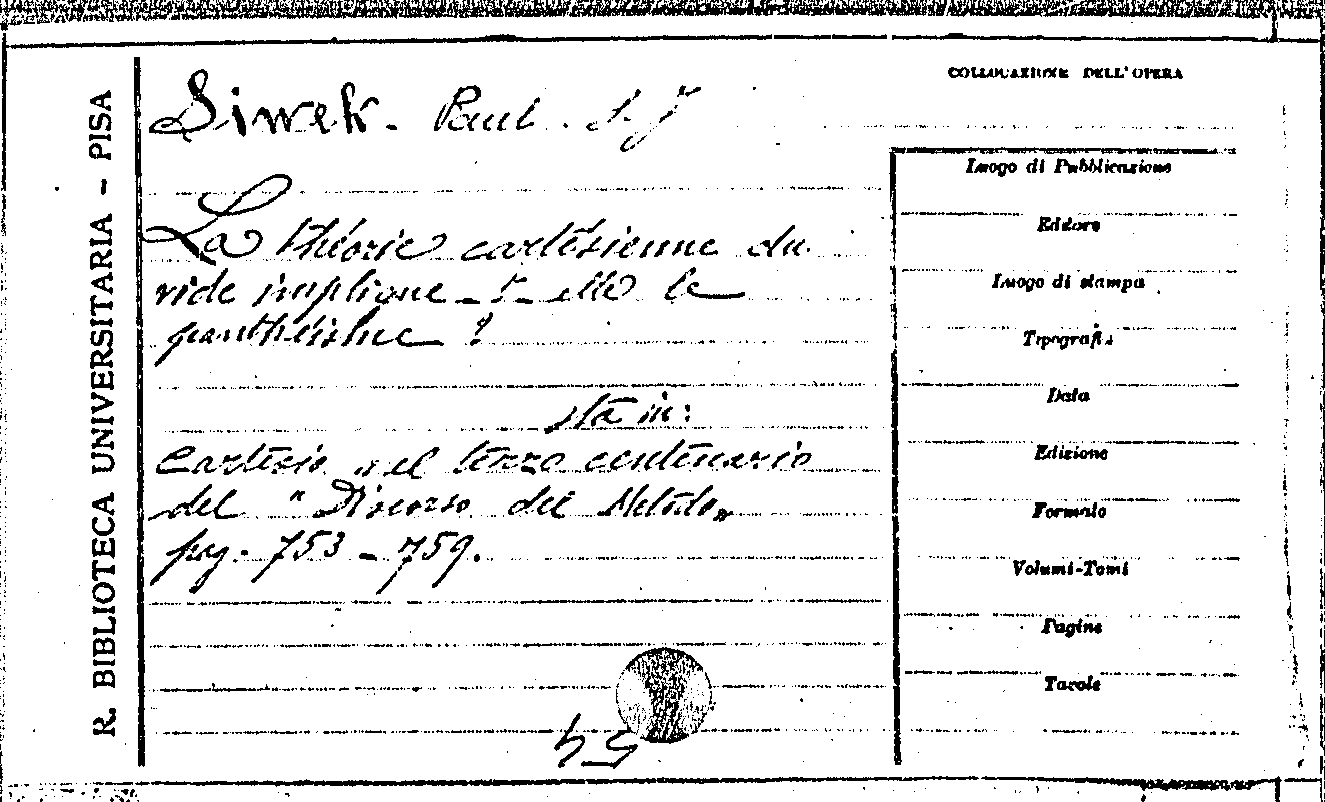 R. BIBLIOTECA UNIVERSITARIA - PISA
COLLOCAZIONE DELL'OPERA
Siwek. Paul. S. J
La théorie cartésienne du
vide implique-t-elle le
panthéisme ?
sta in:
Cartesio nel terzo centenario
del "Discorso del Metodo"
pag. 753-759.
Luogo di Pubblicazione
Editore
Luogo di stampa
Tipografia
Data
Edizione
Formato
Volumi-Tomi
Pagine
Tavole